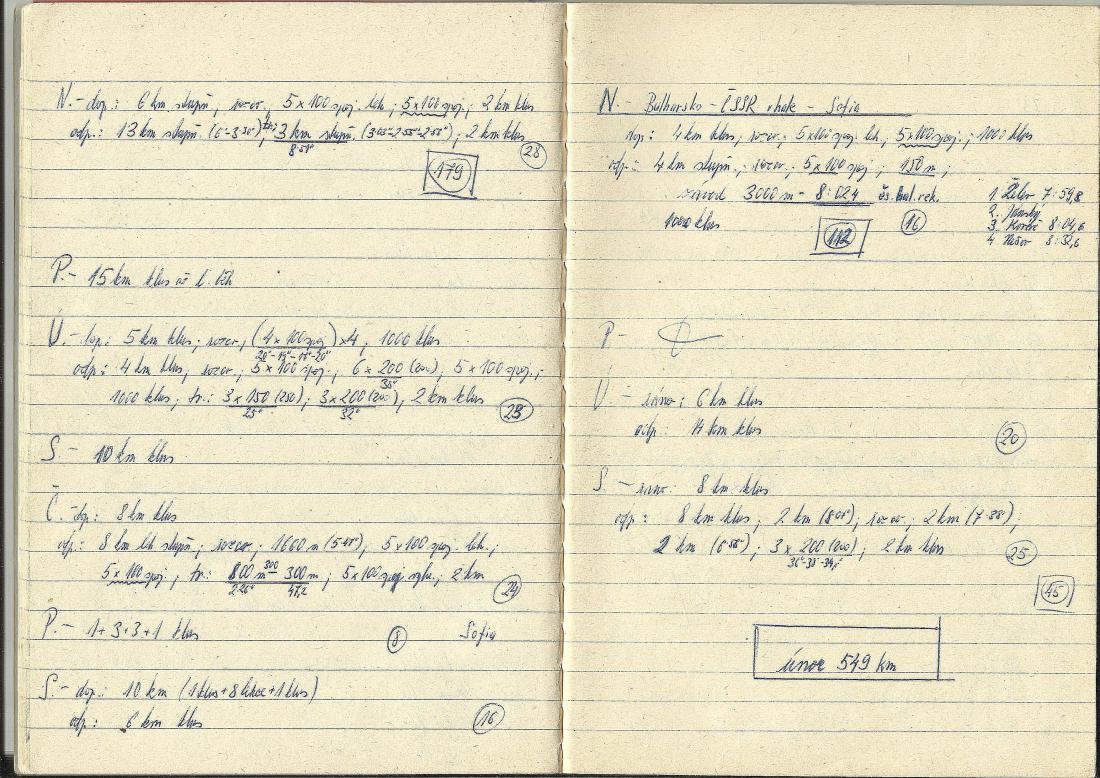 N. - dop.: 6 km stupň., rozcv., 5 x 100 spoj. leh., 5x100 spoj., 2 km klus
odp.: 13 km stupň. (6-3:50"), 3 km stupň. (3:05"-2:55"-2:51"), 2 km klus
8:51"
28
179
P. - 15 km klus až l. běh
Ú. - dop.: 5 km klus, rozcv., (4 x 100 spoj) x4, 1000 klus
20"-19"-19"-20"
odp.: 4 km klus, rozcv., 5 x 100 spoj., 6 x 200 (200), 5 x 100 spoj.,
30"
1000 klus, tr.: 3 x 150 (250), 3 x 200 (200), 2 km klus
25" 32"
S. - 10 km klus
Č. - dop.: 8 km klus
odp.: 8 km leh. stupň., rozcv., 1600 m (5:41"), 5 x 100 spoj. leh.,
5 x 100 spoj., tr.: 800 m 300 - 300 m, 5 x 100 spoj., 2 km
2:26" 47,2
24
P. - 1+3+3+1 klus 8 Sofia
S. - dop.: 10 km (1 klus + 8 lehce + 1 klus)
odp.: 6 km klus 16
N. - Bulharsko - ČSSR v hale - Sofia
dop: 4 km klus, rozcv., 5x100 spoj. leh., 5x100 spoj., 1000 klus
odp.: 4 km stupň., rozcv., 5 x 100 spoj., 150 m,
závod 3000 m - 8:02,4 čs. hal. rek.
1000 klus 112 16
1. Žilev 7:59,8
2. Jánský
3. 8:04,6
4. 8:32,6
P -
Ú. - ráno: 6 km klus
odp.: 14 km klus 20
S. - ráno: 8 km klus
odp.: 8 km klus, 2 km (8:05"), rozcv., 2 km (7:38"),
2 km (6:58"), 3 x 200 (200), 2 km klus
25
45
únor 549 km